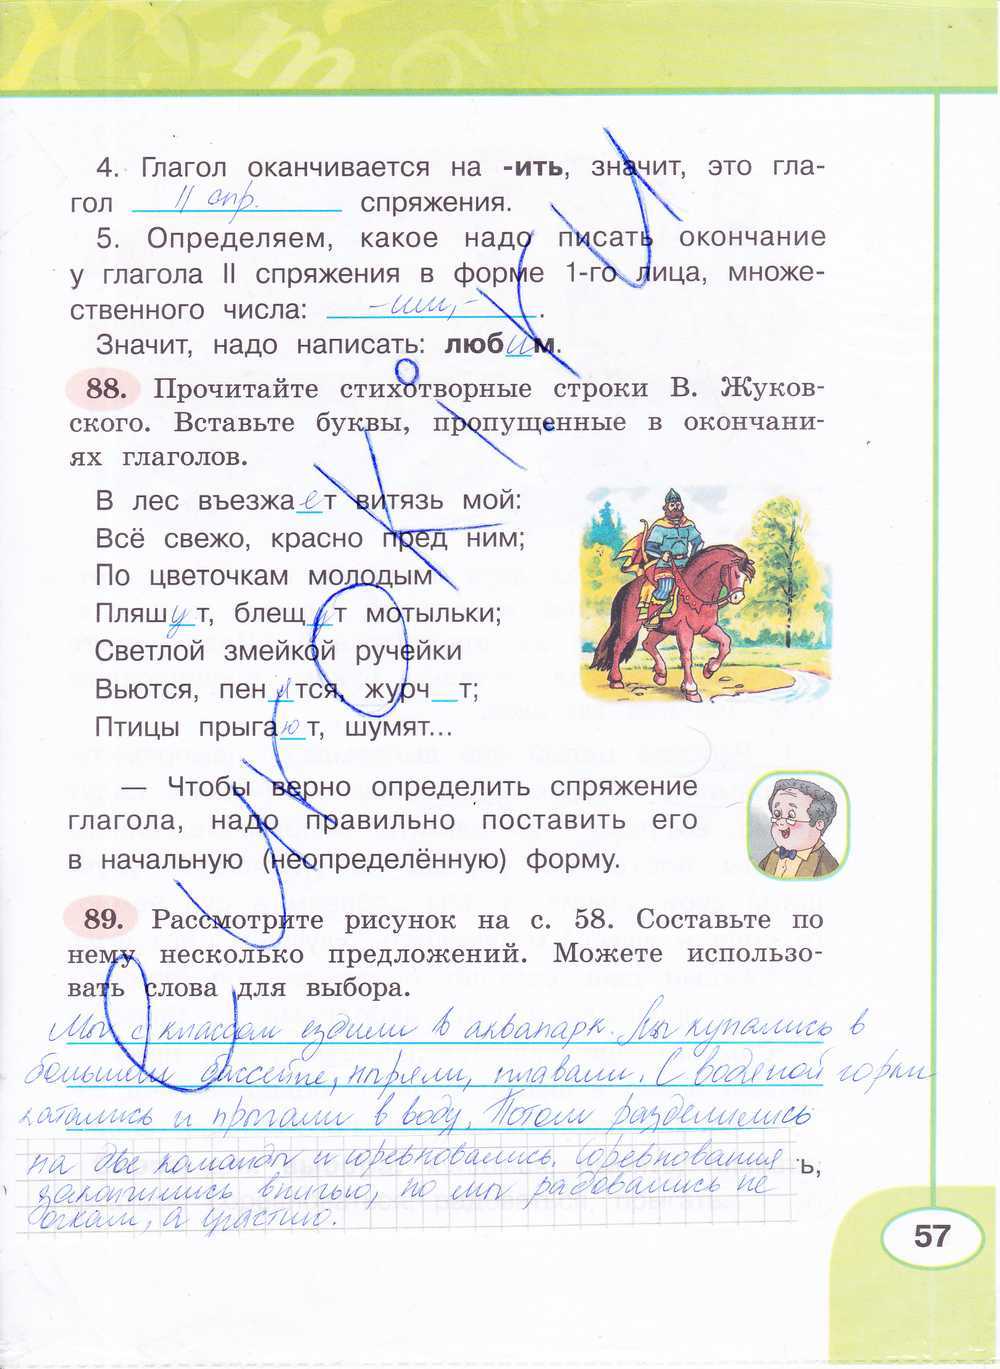 4. Глагол оканчивается на -ить, значит, это гла-
гол II спр. спряжения.
5. Определяем, какое надо писать окончание
у глагола II спряжения в форме 1-го лица, множе-
ственного числа: -им,-.
Значит, надо написать: любим.
88. Прочитайте стихотворные строки В. Жуков-
ского. Вставьте буквы, пропущенные в окончани-
ях глаголов.
В лес въезжает витязь мой:
Всё свежо, красно пред ним;
По цветочкам молодым
Пляшут, блещут мотыльки;
Светлой змейкой ручейки
Вьются, пенятся, журч__т;
Птицы прыгают, шумят...
— Чтобы верно определить спряжение
глагола, надо правильно поставить его
в начальную (неопределённую) форму.
89. Рассмотрите рисунок на с. 58. Составьте по
нему несколько предложений. Можете использо-
вать слова для выбора.
Мы с классом ездили в аквапарк. Мы купались в
большом бассейне, ныряли, плавали. С водяной горки
катались и прыгали в воду. Потом разделились
на две команды и соревновались. Соревнования
ь,
закончились вничью, но мы радовались не
очкам, а участию.
57
с уроки ки